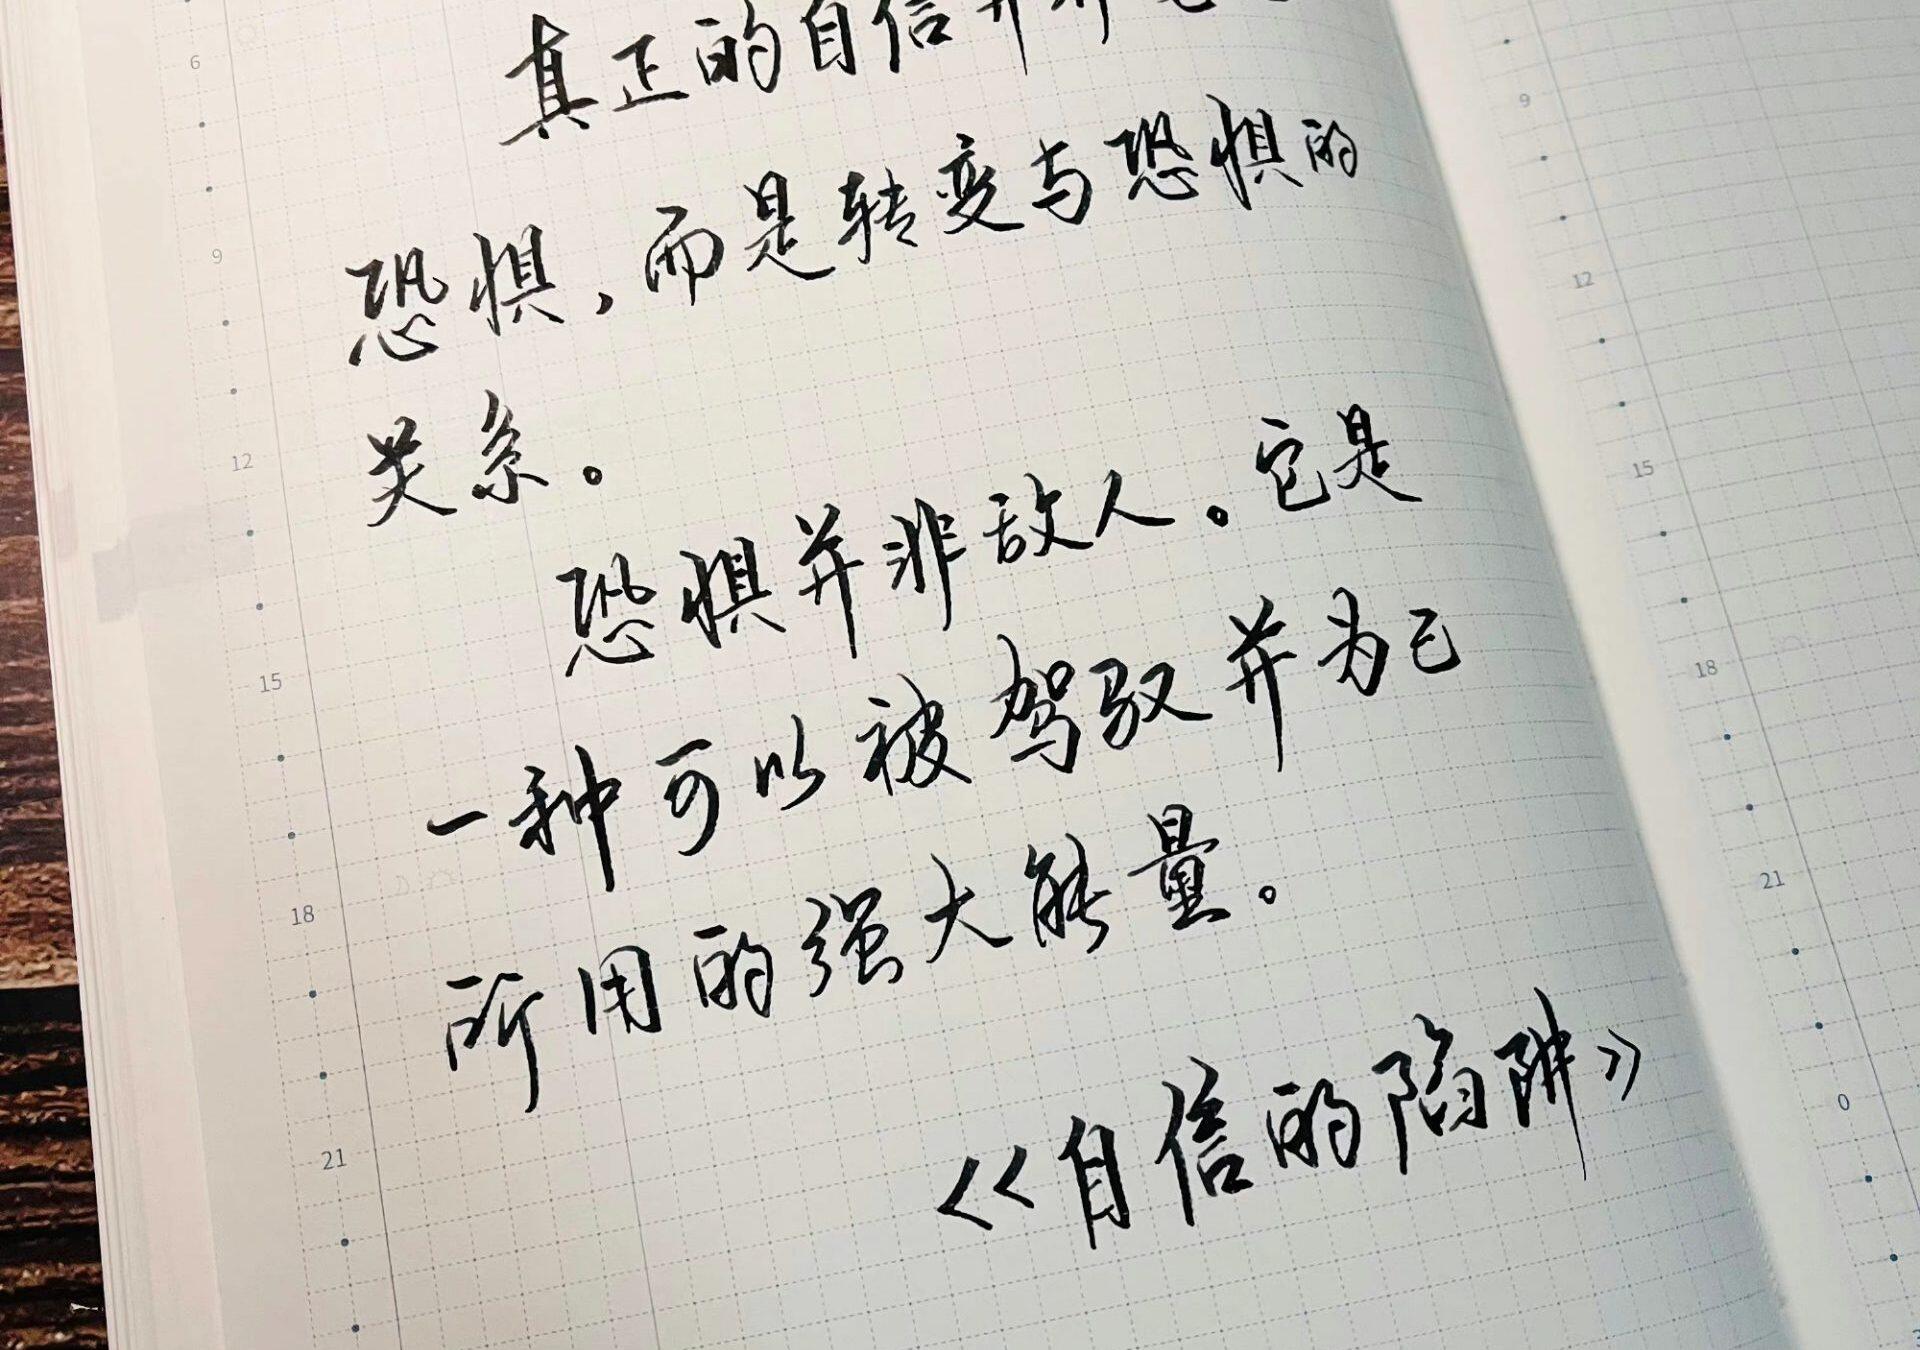 真正的自信并非
恐惧，而是转变与恐惧的
关系。
恐惧并非敌人。它是
一种可以被驾驭并为己
所用的强大能量。
《自信的陷阱》
6
9
12
15
18
21
9
12
15
18
21
0